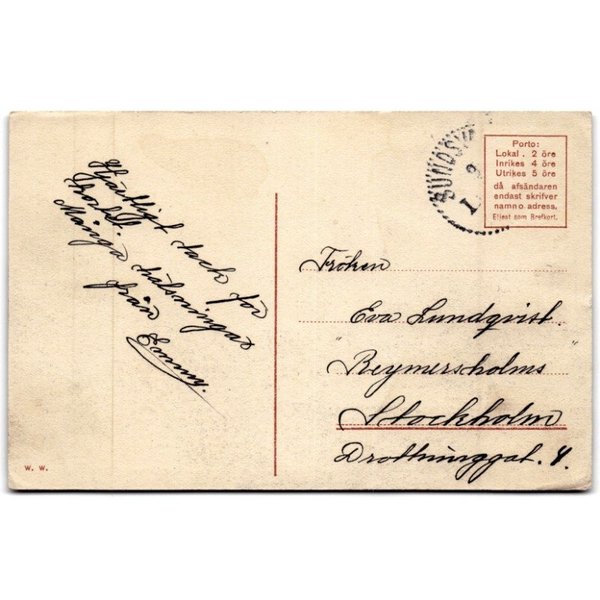 Hjärtligt tack för
Många hälsningar
från
Emmy.
SUNDSV
1 9
Porto:
Lokal . 2 öre
Inrikes 4 öre
Utrikes 5 öre
då afsändaren
endast skrifver
namn o. adress.
Eljest som Brefkort.
Fröken
Eva Lundqvist.
"Reymersholms
Stockholm
Drottninggat. 4.
W. W.